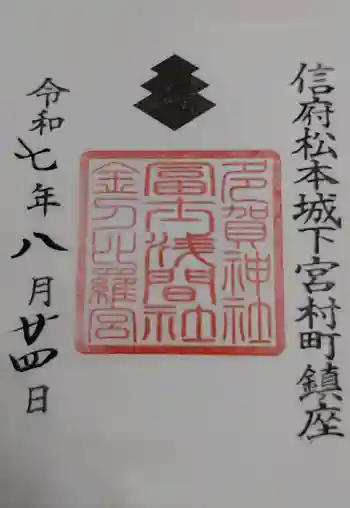 信府松本城下宮村町鎮座
多賀神社
冨士浅間社
金刀比羅宮
令和七年八月廿四日